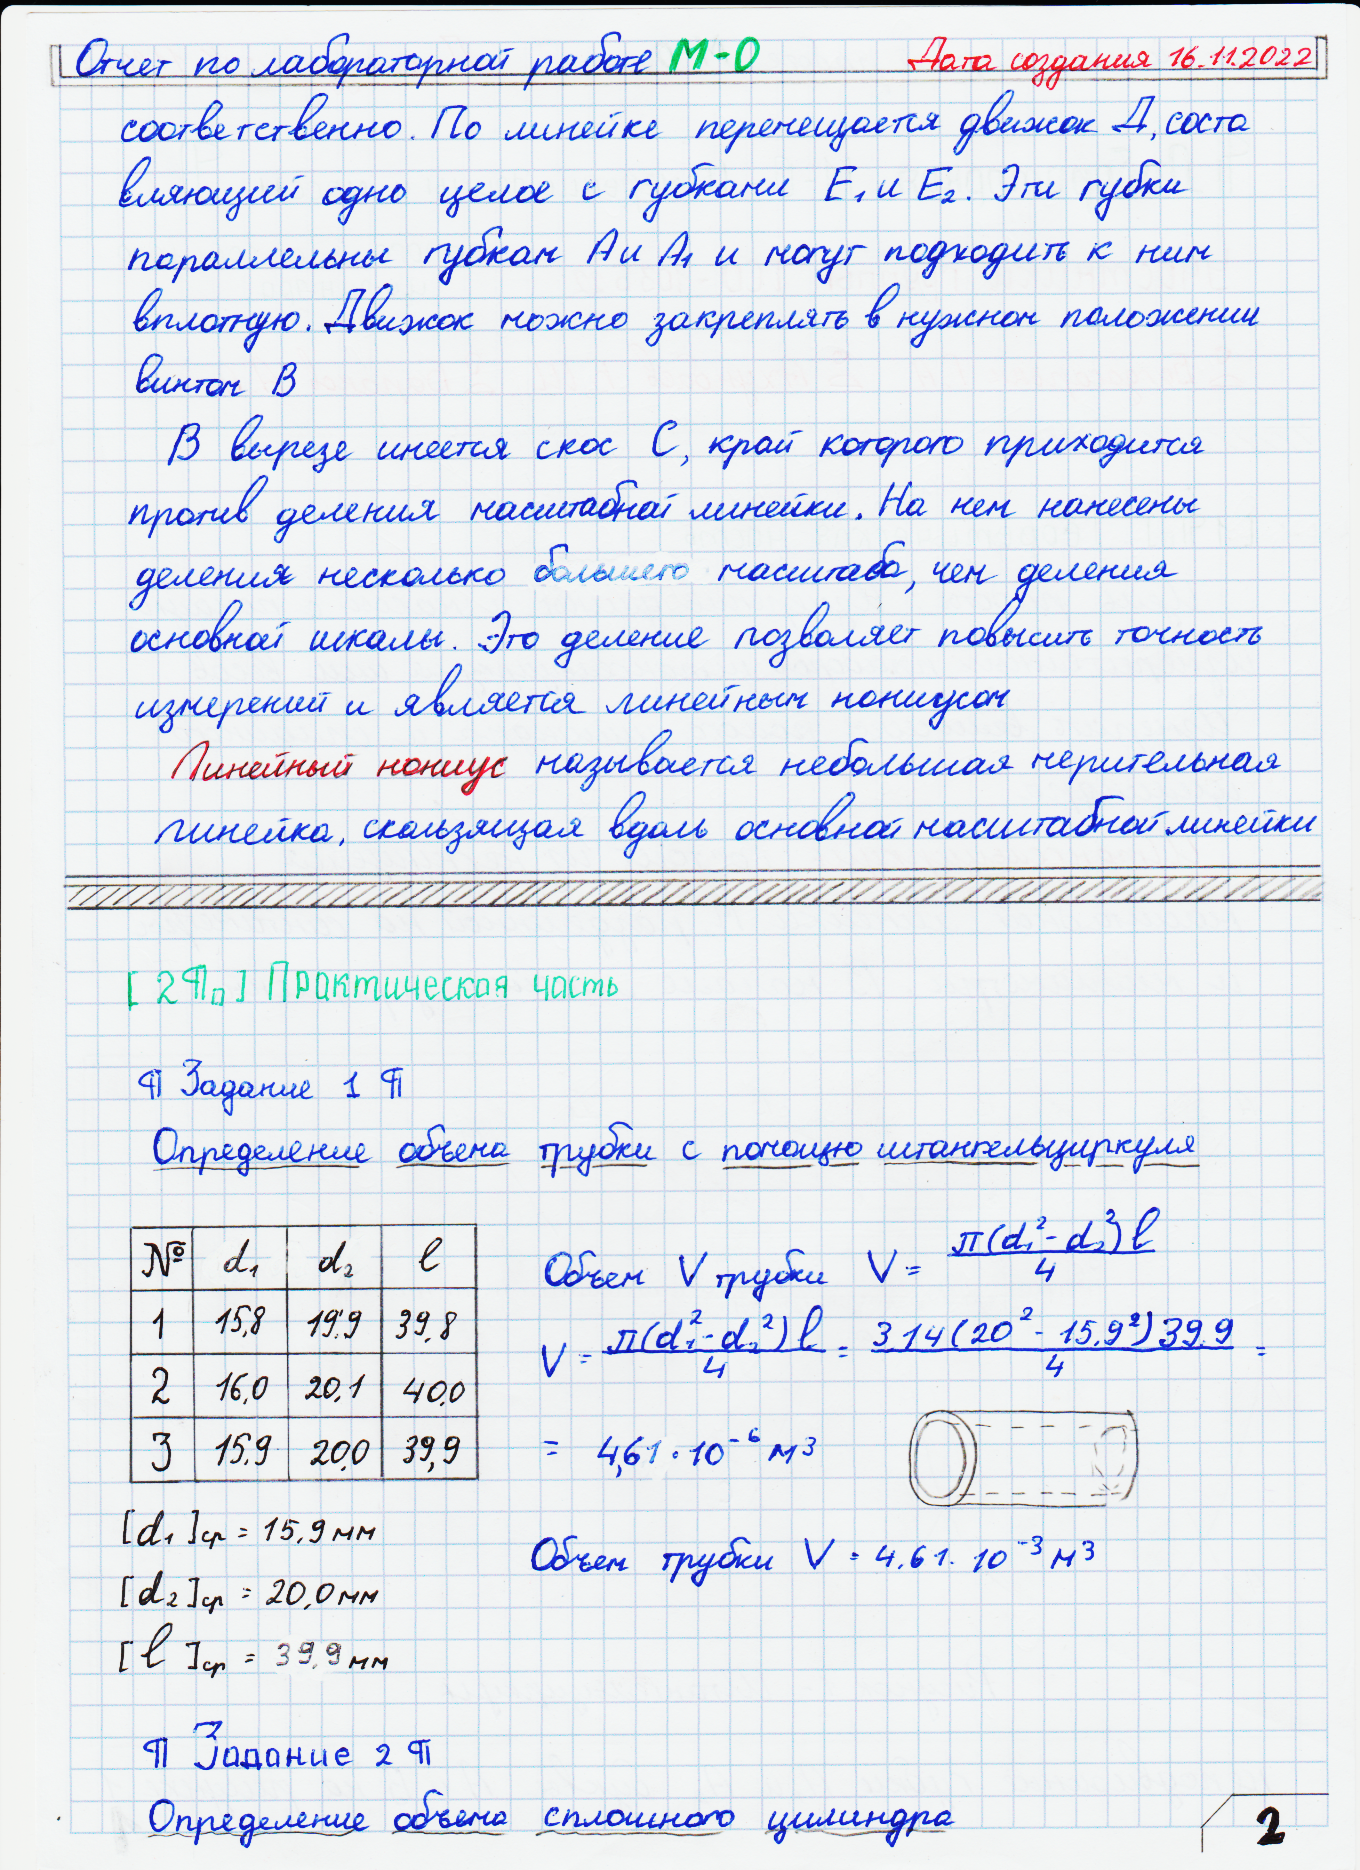 Отчет по лабораторной работе М-О Дата создания 16.11.2022
соответственно. По линейке перемещается движок Д, соста
вляющий одно целое с губками Е₁ и Е₂. Эти губки
параллельны губкам А и А₁ и могут подходить к ним
вплотную. Движок можно закреплять в нужном положении
винтом В
В вырезе имеется скос С, край которого приходится
против деления масштабной линейки. На нем нанесены
деления несколько большего масштаба, чем деления
основной шкалы. Это деление позволяет повысить точность
измерений и является линейным нониусом
Линейный нониус называется небольшая мерительная
линейка, скользящая вдоль основной масштабной линейки
[2¶п] Практическая часть
¶ Задание 1 ¶
Определение объема трубки с помощю штангельциркуля
№ d₁ d₂ l
1 15,8 19,9 39,8
2 16,0 20,1 40,0
3 15,9 20,0 39,9
[d₁]ср = 15,9 мм
[d₂]ср = 20,0 мм
[l]ср = 39,9 мм
Объем V трубки V = π(d₁² - d₂²) l / 4
V = π(d₁² - d₂²) l / 4 = 3.14(20² - 15,9²) 39,9 / 4 =
= 4,61 · 10⁻⁶ м³
Объем трубки V = 4,61 · 10⁻³ м³
¶ Задание 2 ¶
Определение объема сплошного цилиндра
2